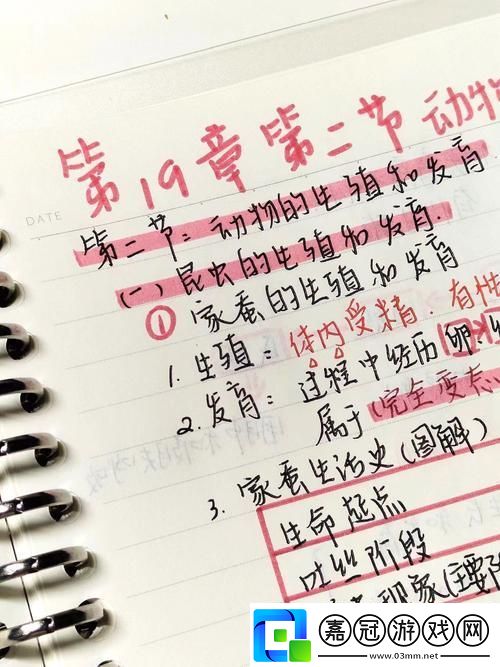 第19章第二节动物
DATE
第二节:动物的生殖和发育.
(一)昆虫的生殖和发育.
①家蚕的生殖和发育
1.生殖:体内受精.有性
2.发育:过程中经历卵.幼
属于(完全变态
3.家蚕生活史(图解)
生命起点
吐丝阶段
现象(主要阶
嘉冠游戏网
www.03mm.net